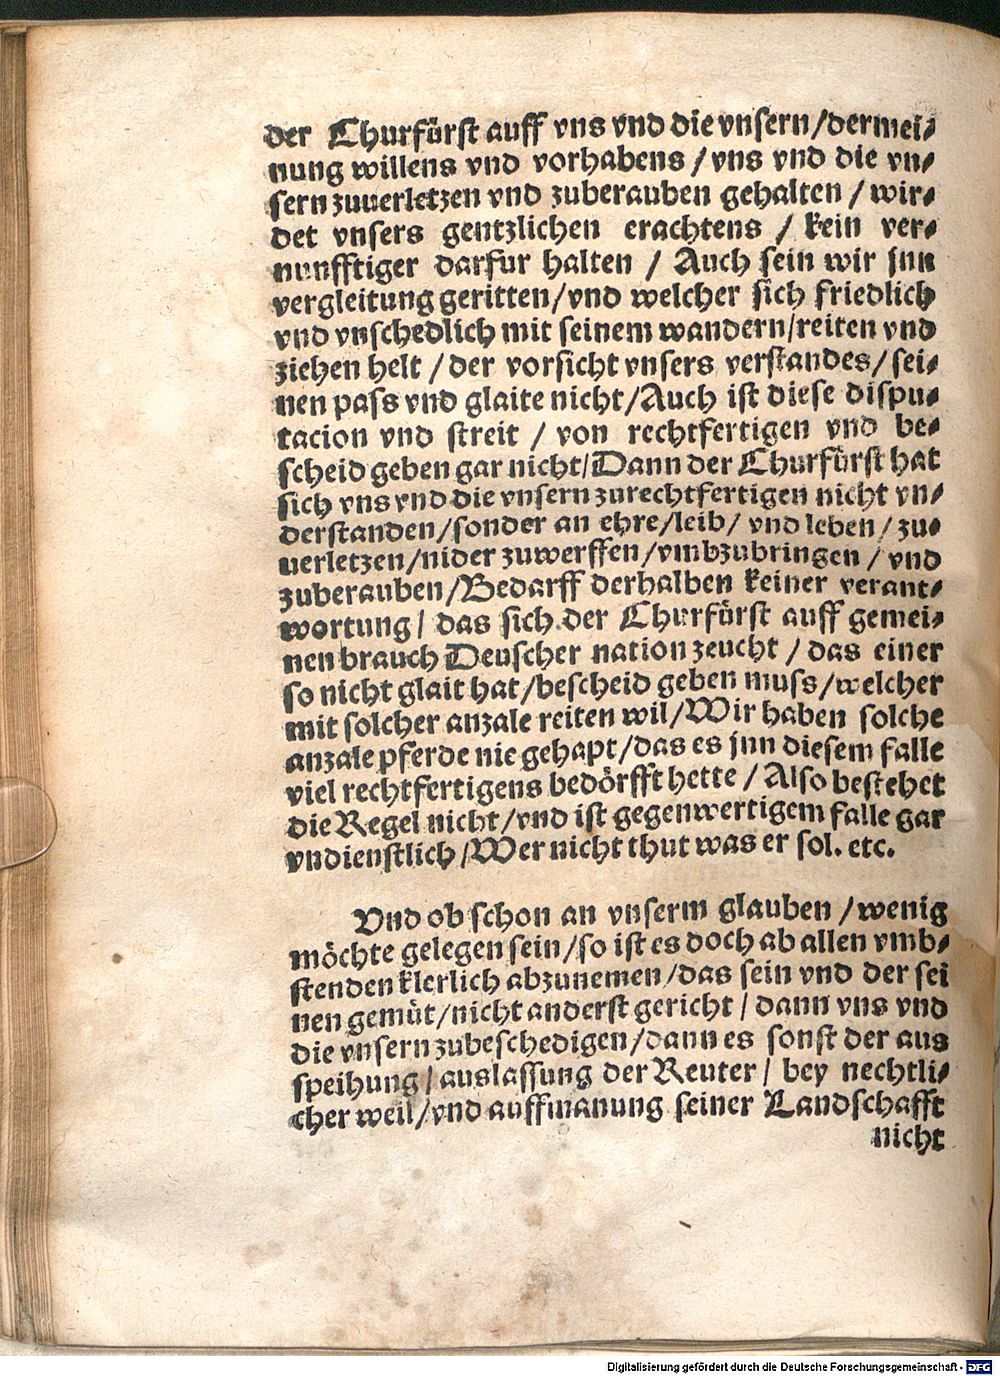 der Churfürst auff vns vnd die vnsern/dermei⸗
nung willens vnd vorhabens /vns vnd die vn⸗
sern zuuerletzen vnd zuberauben gehalten / wir⸗
det vnsers gentzlichen erachtens / kein ver⸗
nunfftiger darfur halten / Auch sein wir jnn
vergleitung geritten/vnd welcher sich friedlich
vnd vnschedlich mit seinem wandern/reiten vnd
ziehen helt /der vorsicht vnsers verstandes/sei⸗
nen pass vnd glaite nicht/Auch ist diese dispu⸗
tacion vnd streit / von rechtfertigen vnd be⸗
scheid geben gar nicht/Dann der Churfürst hat
sich vns vnd die vnsern zurechtfertigen nicht vn⸗
derstanden/sonder an ehre/leib/ vnd leben/ zu⸗
uerletzen/nider zuwerffen/vmbzubringen /vnd
zuberauben/Bedarff derhalben keiner verant⸗
wortung/ das sich der Churfürst auff gemei⸗
nen brauch Deuscher nation zeucht / das einer
so nicht glait hat/bescheid geben muss/welcher
mit solcher anzale reiten wil/Wir haben solche
anzale pferde nie gehapt/das es jnn diesem falle
viel rechtfertigens bedörfft hette / Also bestehet
die Regel nicht/vnd ist gegenwertigem falle gar
vndienstlich/Wer nicht thut was er sol. etc.
Vnd ob schon an vnserm glauben /wenig
möchte gelegen sein/so ist es doch ab allen vmb⸗
stenden klerlich abzunemen/das sein vnd der sei
nen gemüt/nicht anderst gericht/ dann vns vnd
die vnsern zubeschedigen/dann es sonst der aus
speihung/auslassung der Reuter/ bey nechtli⸗
cher weil/vnd auffmanung seiner Landschafft
nicht
Digitalisierung gefördert durch die Deutsche Forschungsgemeinschaft - DFG